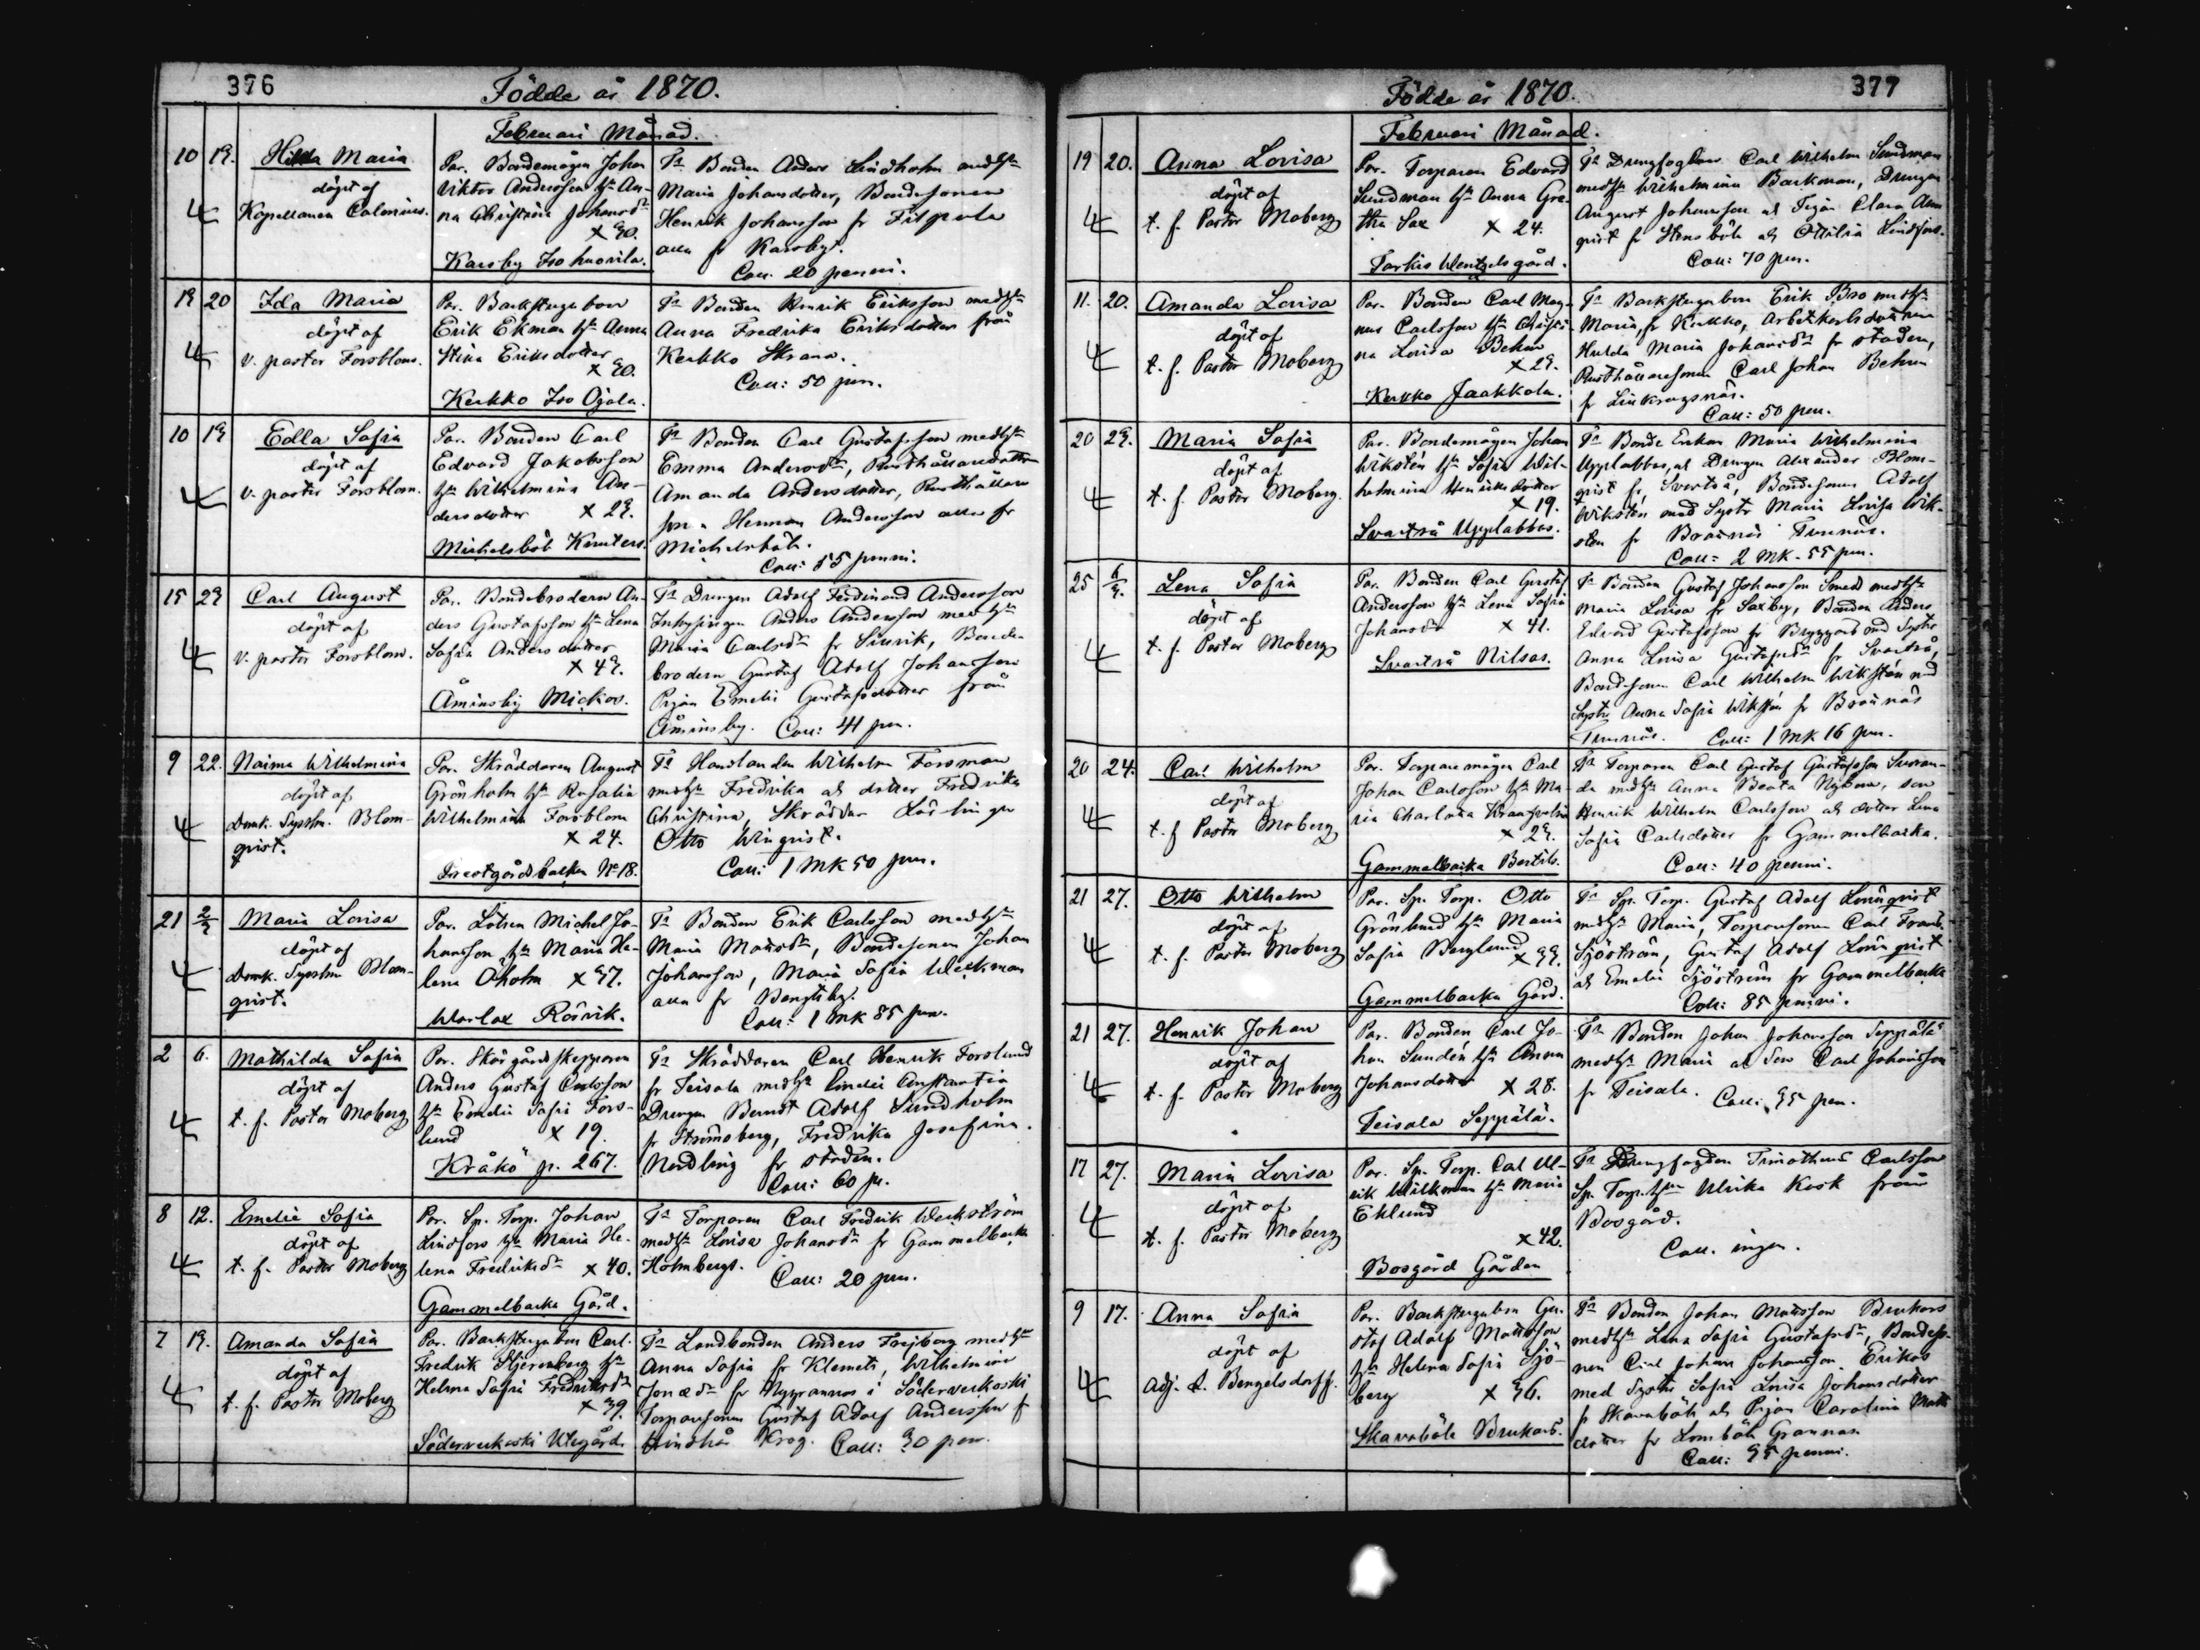 376
Födde år 1870.
Februari Månad.
10 13. Hilda Maria
döpt af
Kapellanen Calonius.
Par. Bondemågen Johan
Viktor Andersson hu An-
na Christina Johansdr
x 30.
Karsby Isohuovila.
Fr Bonden Anders Lindholm med hu
Maria Johansdotter, Bondesonen
Henrik Johansson fr
alla fr Karsby.
Coll. 20 penni.
13 20 Ida Maria
döpt af
v. pastor Forsblom.
Par. Backstugubon
Erik Ekman hu Anna
Stina Eriksdotter
x 30.
Kerkko Iso Ojala.
Fr Bonden Henrik Eriksson med hu
Anna Fredrika Eriksdotter från
Kerkko Skrana.
Coll: 50 pen.
10 13 Edla Sofia
döpt af
v. pastor Forsblom.
Par. Bonden Carl
Edvard Jakobsson
hu Wilhelmina An-
dersdotter x 23.
Michelsböle Knuters.
Fr Bonden Carl Gustafsson med hu
Emma Andersdr, Rusthållaredotter
Amanda Andersdotter, Rusthållare
son Herman Andersson alla fr
Michelsböle.
Coll: 55 penni.
15 23 Carl August
döpt af
v. pastor Forsblom.
Par. Bondebrodern An-
ders Gustafsson hu Lena
Sofia Andersdotter
x 43.
Åminsby Mickos.
Fr Drengen Adolf Ferdinand Andersson
Inhysingen Anders Andersson med hu
Maria Carlsdr fr Sinnik, Bonde
brodern Gustaf Adolf Johansson
Pigan Emelie Gustafsdotter från
Åminsby. Coll: 41 pen.
9 22. Naima Wilhelmina
döpt af
Domk. Sysslm. Blom-
qvist.
Par. Skräddaren August
Grönholm hu Rosalia
Wilhelmina Forsblom
x 24.
Prestgårdsbacken No 18.
Fr Handlanden Wilhelm Forsman
med hu Fredrika och dotter Fredrika
Christina, Skräddar Lärlingen
Otto Winqvist.
Coll: 1 Mk 50 pen.
21 2/3 Maria Lovisa
döpt af
Domk. Sysslm Blom-
qvist.
Par. Lotsen Michel Jo-
hansson hu Maria He-
lena Öholm x 37.
Warlax Rörvik.
Fr Bonden Erik Carlsson med hu
Maria Matsdr, Bondesonen Johan
Johansson, Maria Sofia Weckman
alla fr Bengtsby.
Coll: 1 Mk 85 pen.
2 6. Mathilda Sofia
döpt af
t. f. Pastor Moberg
Par. Skärgårdsskepparen
Anders Gustaf Carlsson
hu Emelie Sofia Fors-
lund x 19.
Kråkö p. 267.
Fr Skräddaren Carl Henrik Forslund
fr Teisala med hu Emelie Constantia
Drengen Berndt Adolf Sundholm
fr Strömsberg, Fredrika Josefina
Nordling fr staden.
Coll: 60 p.
8 12. Emelie Sofia
döpt af
t. f. Pastor Moberg
Par. Sp. Torp. Johan
Lindfors hu Maria He-
lena Fredriksdr x 40.
Gammelbacka Gård.
Fr Torparen Carl Fredrik Weckström
med hu Lovisa Johansdr fr Gammelbacka
Holmbergs. Coll: 20 pen.
7 13. Amanda Sofia
döpt af
t. f. Pastor Moberg
Par. Backstugubon Carl
Fredrik Stjernberg hu
Helena Sofia Fredriksdr
x 39.
Söderveckoski Ulsgård.
Fr Landbonden Anders Frejborg med hu
Anna Sofia fr Klemets, Wilhelmina
Jonædr fr Nygrannas i Söderveckoski
Torparesonen Gustaf Adolf Andersson f
Hindhår Krog. Coll: 30 pen.
377
Födde år 1870.
Februari Månad.
19 20. Anna Lovisa
döpt af
t. f. Pastor Moberg
Par. Torparen Edvard
Sundman hu Anna Gre-
tha Sax x 24.
Tarkis Wentzelsgård.
Fr Drengfogden Carl Wilhelm Sundman
med hu Wilhelmina Backman, Drengen
August Johansson och Pigan Clara Alm
qvist fr Stensböle och Ottilia Lindfors.
Coll: 70 pen.
11. 20. Amanda Lovisa
döpt af
t. f. Pastor Moberg
Par. Bonden Carl Mag-
nus Carlsson hu Christi-
na Lovisa Behm
x 23.
Kerkko Jaakkola.
Fr Backstugubon Erik Bro med hu
Maria, fr Kerkko, Arbetkarlsdottern
Hulda Maria Johansdr fr staden,
Rusthållaresonen Carl Johan Behm
fr Linkongsnäs.
Coll: 50 pen.
20 23. Maria Sofia
döpt af
t. f. Pastor Moberg.
Par. Bondemågen Johan
Wikstén hu Sofia Wil-
helmina Henriksdotter
x 19.
Svartså Upplabbas.
Fr Bonde Enkan Maria Wilhelmina
Upplabbas, och Drengen Alexander Blom-
qvist fr Svartså, Bondesonen Adolf
Wikstén med Systr Maria Lovisa Wik-
stén fr Brasnäs Tunnäs.
Coll: 2 Mk. 55 pen.
25 6/3. Lena Sofia
döpt af
t. f. Pastor Moberg
Par. Bonden Carl Gustaf
Andersson hu Lena Sofia
Johansdr x 41.
Svartså Nilsas.
Fr Bonden Gustaf Johansson Smeds med hu
Maria Lovisa fr Saxby, Bonden Anders
Edvard Gustafsson fr Bryggars med Systr
Anna Lovisa Gustafsdr fr Svartså,
Bondesonen Carl Wilhelm Wikstén med
Systr Anna Sofia Wikstén fr Brasnäs
Tunnäs. Coll: 1 Mk 16 pen.
20 24. Carl Wilhelm
döpt af
t. f Pastor Moberg
Par. Torparemågen Carl
Johan Carlsson hu Ma-
ria Charlotta
x 23.
Gammelbacka Bertils.
Fr Torparen Carl Gustaf Gustafsson
med hu Anna Beata Nyberg, son
Henrik Wilhelm Carlsson och dotter Lena
Sofia Carlsdotter fr Gammelbacka.
Coll: 40 penni.
21 27. Otto Wilhelm
döpt af
t. f. Pastor Moberg
Par. Sp. Torp. Otto
Grönlund hu Maria
Sofia Berglund x 33.
Gammelbacka Gård.
Fr Sp. Torp. Gustaf Adolf Lönnqvist
med hu Maria, Torparsonen Carl Frans
Sjöström, Gustaf Adolf Lönnqvist
och Emelie Sjöström fr Gammelbacka
Coll: 85 penni.
21 27. Henrik Johan
döpt af
t. f. Pastor Moberg
Par. Bonden Carl Jo-
han Sundén hu Anna
Johansdotter x 28.
Teisala Seppälä.
Fr Bonden Johan Johansson Seppälä
med hu Maria och Son Carl Johansson
fr Teisala. Coll: 35 pen.
17 27. Maria Lovisa
döpt af
t. f. Pastor Moberg
Par. Sp. Torp. Carl Ul-
rik Willkman hu Maria
Eklund
x 42.
Bosgård Gården
Fr Drengfogden Timotheus Carlsson
Sp. Torp. hun Ulrika Kock från
Bosgård.
Coll. ingen.
9 17. Anna Sofia
döpt af
Adj. A. Bengelsdorff.
Par. Backstugubon Gu-
staf Adolf Mattsson
hu Helena Sofia Sjö-
berg x 36.
Skavaböle Brukars.
Fr Bonden Johan Mattsson Brukars
med hu Lena Sofia Gustafsdr, Bondeso-
nen Carl Johan Johansson Erikas
med Systr Sofia Lovisa Johansdotter
fr Skavaböle och Pigan Carolina Matts
dotter fr Lomböle Grannas
Coll: 35 penni.